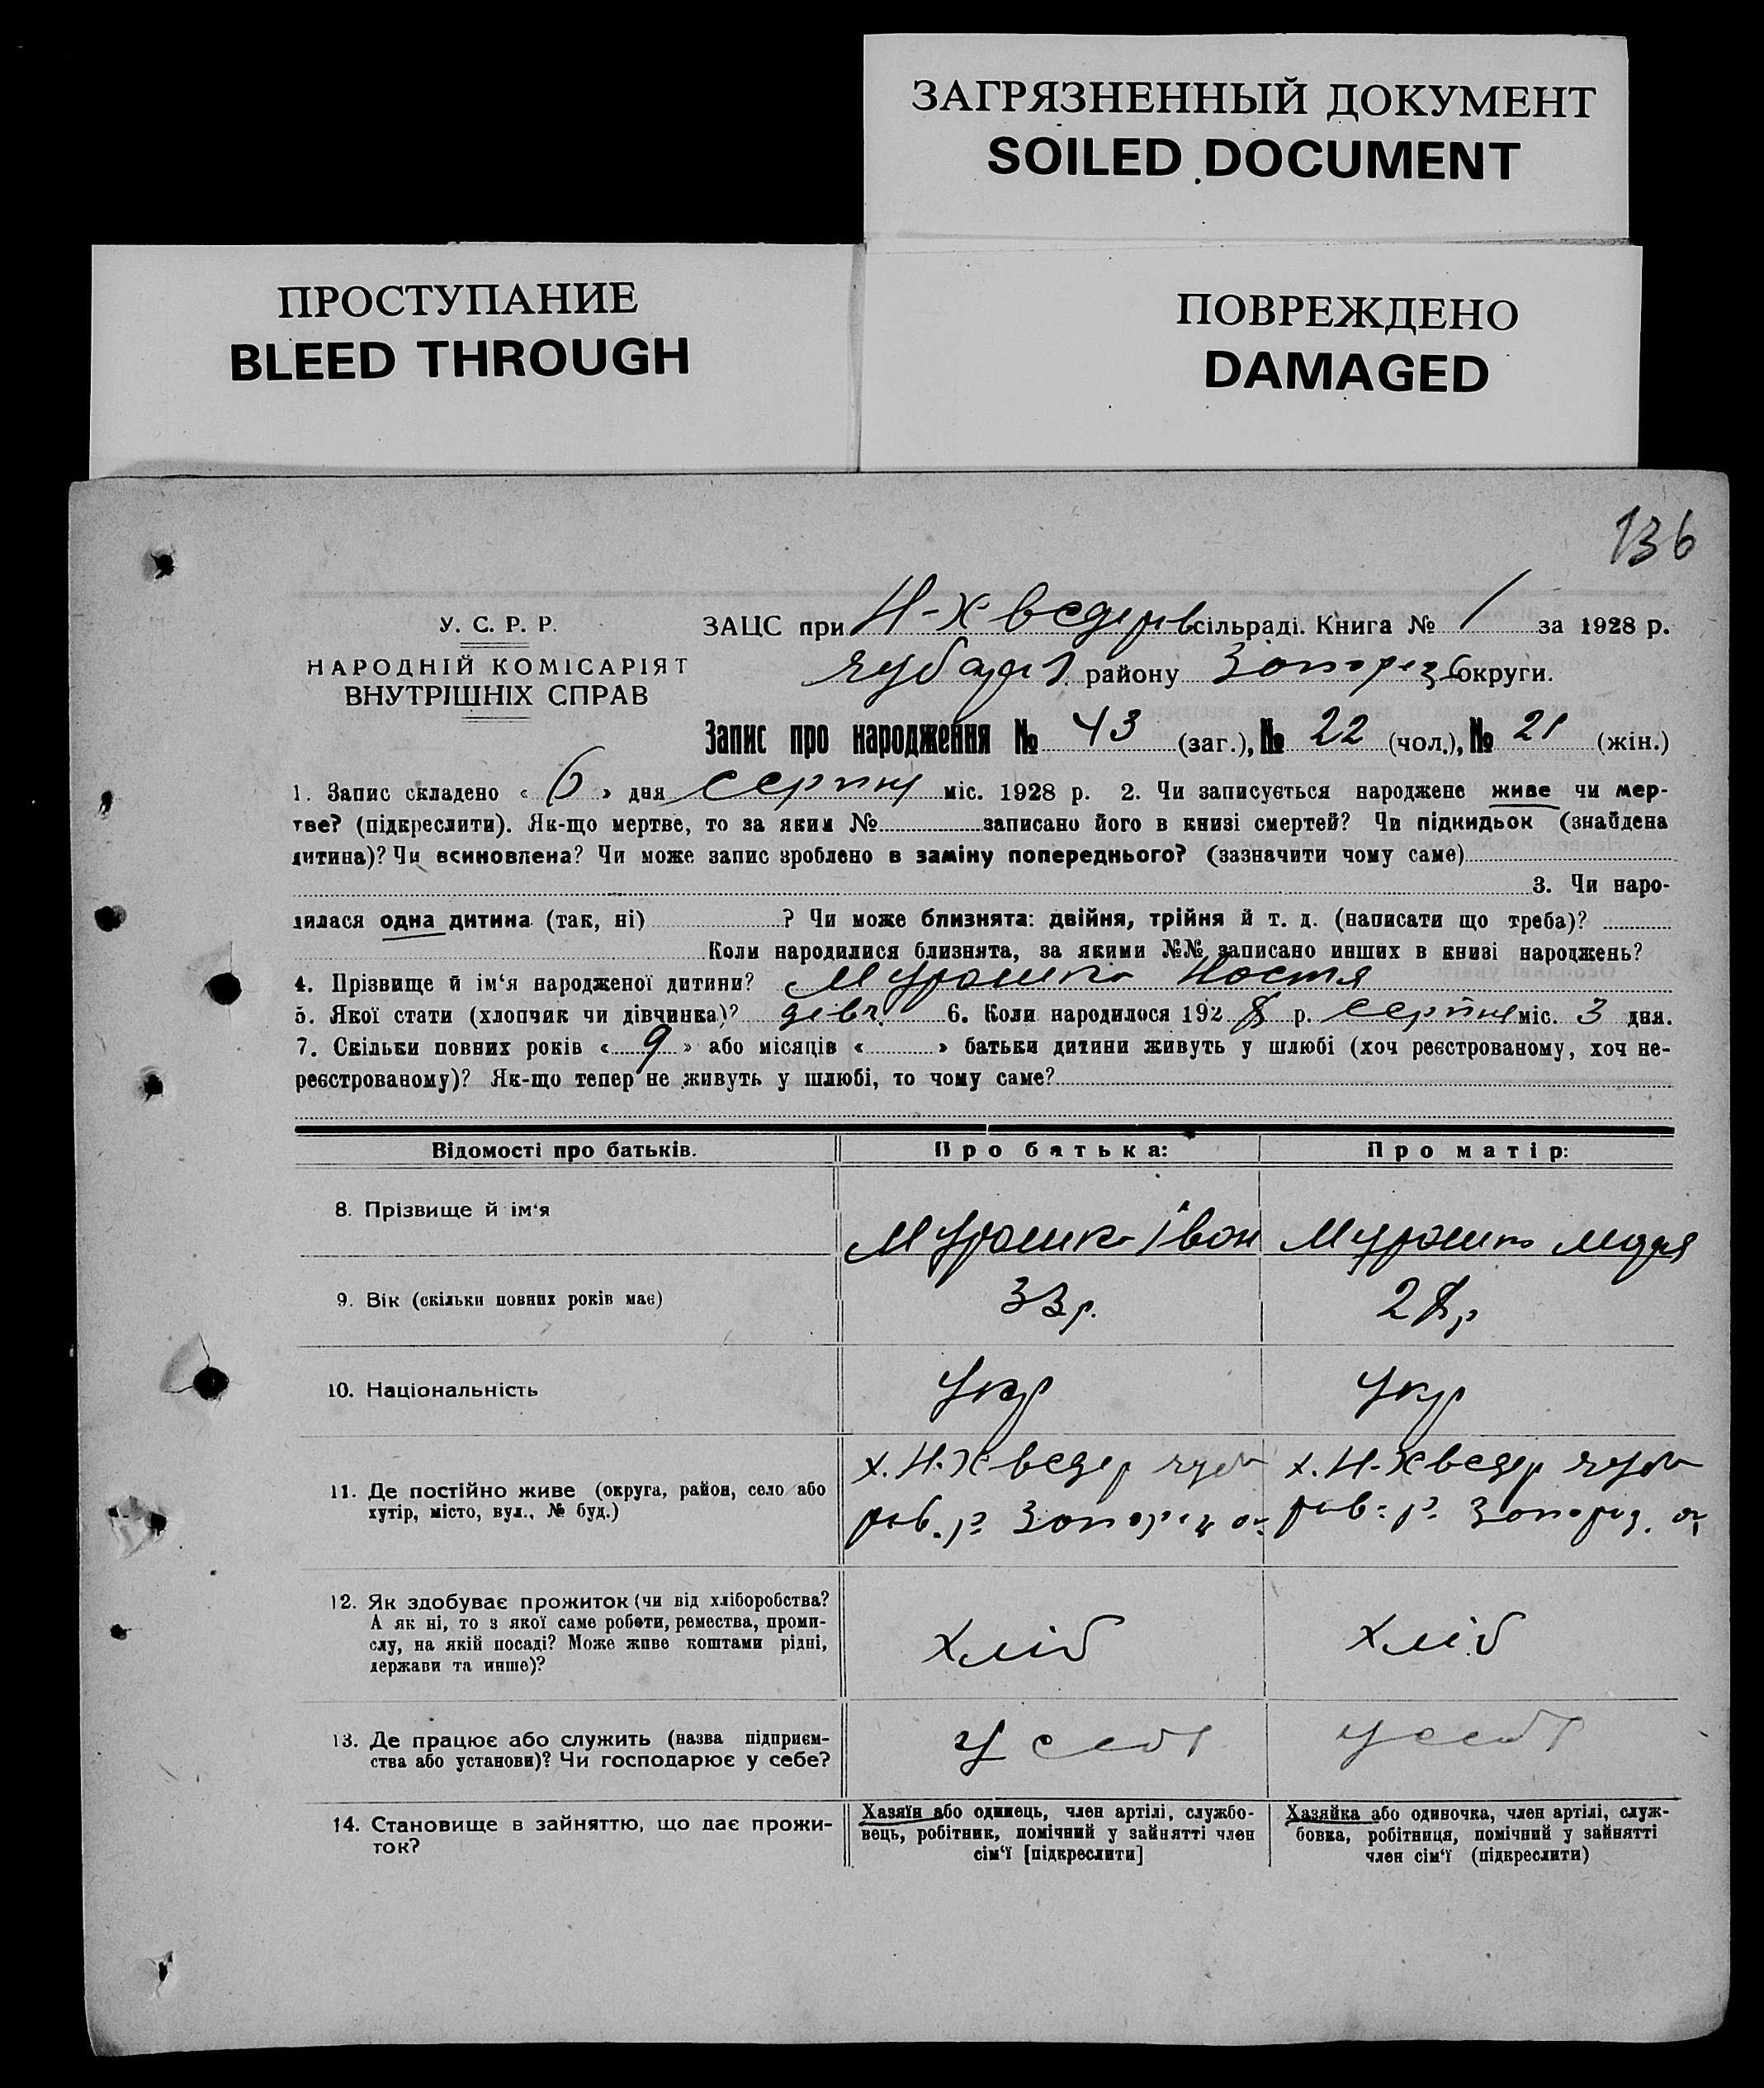 ЗАГРЯЗНЕННЫЙ ДОКУМЕНТ
SOILED DOCUMENT
ПРОСТУПАНИЕ
BLEED THROUGH
ПОВРЕЖДЕНО
DAMAGED
136
У. С. Р. Р.
НАРОДНІЙ КОМІСАРІЯТ
ВНУТРІШНІХ СПРАВ
ЗАЦС при Н-Хведорів сільраді. Книга № 1 за 1928 р.
району Запоріз округи.
Запис про народження № 43 (заг.), № 22 (чол.), № 21 (жін.)
1. Запис складено « 6 » дня серпня міс. 1928 р. 2. Чи записується народжене живе чи мер-
тве? (підкреслити). Як-що мертве, то за яким № записано його в книзі смертей? Чи підкидьок (знайдена
дитина)? Чи всиновлена? Чи може запис зроблено в заміну попереднього? (зазначити чому саме)
3. Чи наро-
дилася одна дитина (так, ні) ? Чи може близнята: двійня, трійня й т. д. (написати що треба)?
Коли народилися близнята, за якими №№ записано инших в книзі народжень?
4. Прізвище й ім‘я народженої дитини? Мурашка Настя
5. Якої стати (хлопчик чи дівчинка)? дівч. 6. Коли народилося 1928 р. серпня міс. 3 дня.
7. Скільки повних років « 9 » або місяців « » батьки дитини живуть у шлюбі (хоч реєстрованому, хоч не-
реєстрованому)? Як-що тепер не живуть у шлюбі, то чому саме?
Відомості про батьків. Про батька: Про матір:
8. Прізвище й ім‘я
Мурашка Іван Мурашка
9. Вік (скільки повних років має) 33 р. 28 р
10. Національність Укр Укр
11. Де постійно живе (округа, район, село або
хутір, місто, вул., № буд.)
х. Н-Хведор х. Н-Хведор
рів. р. Запоріз ок рів. р. Запоріз. ок
12. Як здобуває прожиток (чи від хліборобства?
А як ні, то з якої саме роботи, ремества, проми-
слу, на якій посаді? Може живе коштами рідні,
держави та инше)?
хліб хліб
13. Де працює або служить (назва підприєм-
ства або установи)? Чи господарює у себе?
У себе У себе
14. Становище в зайняттю, що дає прожи-
ток?
Хазяїн або одинець, член артілі, службо-
вець, робітник, помічний у зайнятті член
сім‘ї [підкреслити]
Хазяйка або одиночка, член артілі, служ-
бовка, робітниця, помічний у зайнятті
член сім‘ї (підкреслити)